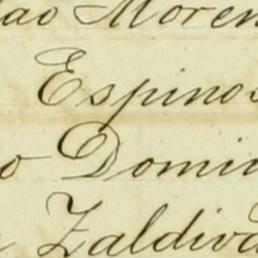 lao Moren
Espinos
o Domin
Zaldiva